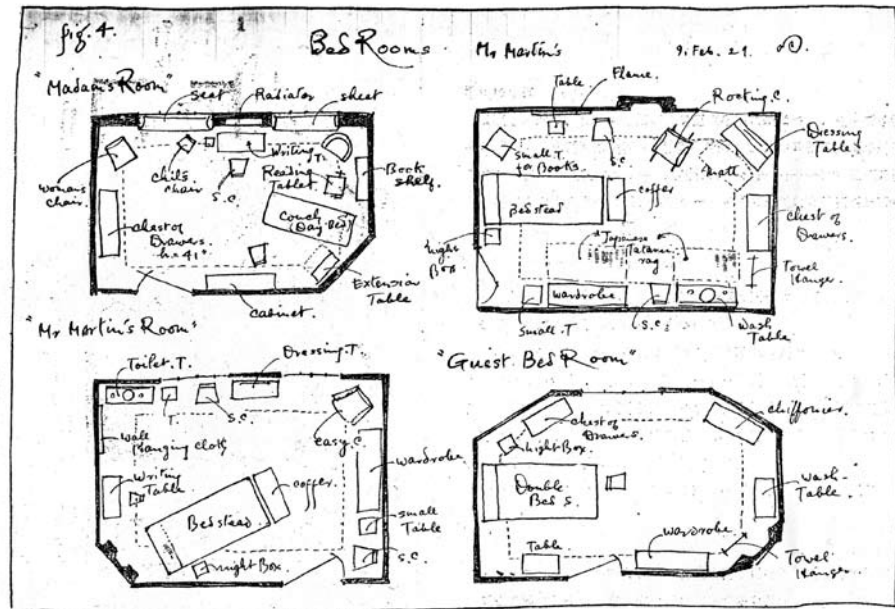 fig. 4.
Bed Rooms
Mr Martin's
9. Feb. 21.
"Madam's Room"
seat
Radiator
sheet
Woman's
chair.
Chil's
chair
S.C
Writing T.
Reading
Table
Book
shelf.
Couch
(Day-Bed)
Chest of
Drawers.
h=41"
Extension
Table
Cabinet.
Table
Flame.
Rocking.C.
Dressing
Table.
S.C.
Small T.
for Books
matt
Bedstead
coffer
Chest of
Drawers.
night
Box
"Japanese"
Tatami
rag
Towel
Hanger.
Small.T
wardrobe
S.C.
Wash
Table
"Mr Martin's Room"
Toilet.T.
Dressing.T.
T.
S.C.
easy.C
Wall
Hanging cloth
wardrobe
Writing
Table
coffer.
Bedstead
Small
Table
S.C
night Box.
"Guest Bed Room"
Chest of
Drawers
chiffonier.
night Box.
Double
Bed S.
Wash-
Table.
Table.
wardrobe
Towel
Hanger.